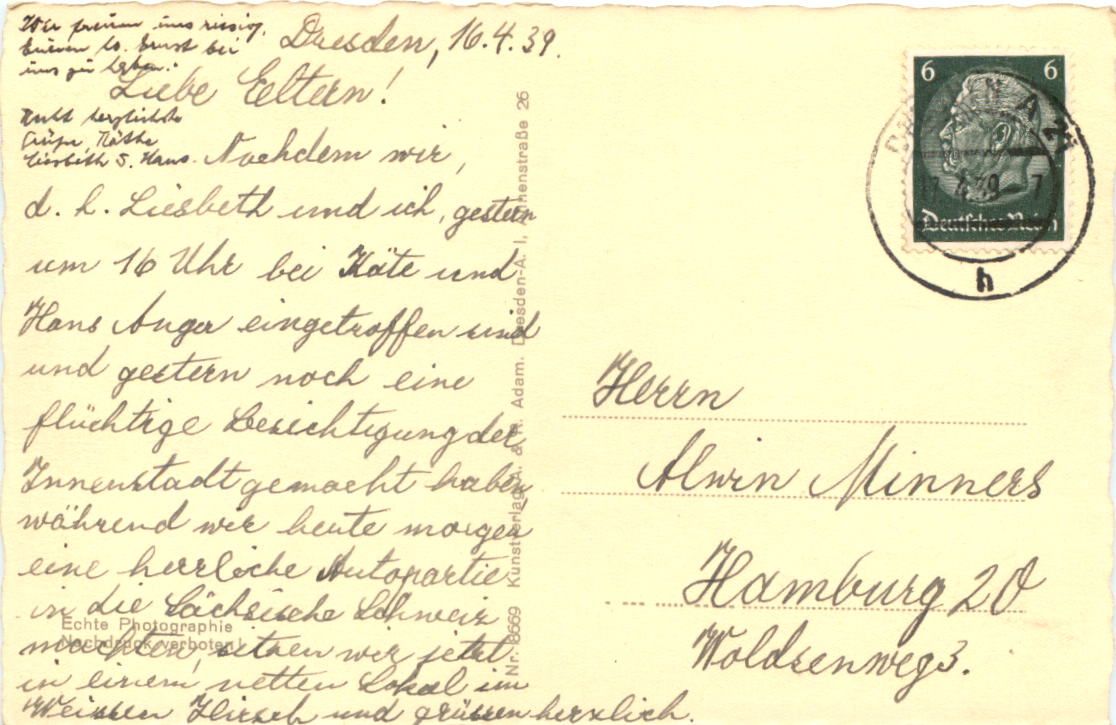 Dresden, 16.4.39.
Liebe Eltern!
Nachdem wir,
d. h. Liesbeth und ich, gestern
um 16 Uhr bei Käte und
Hans Anger eingetroffen sind
und gestern noch eine
flüchtige Besichtigung der
Innenstadt gemacht haben
während wir heute morgen
eine herrliche Autopartie
in die Sächsische Schweiz
machten, sitzen wir jetzt
in einem netten Lokal im
Weissen Hirsch und grüssen herzlich.
Wir freuen uns riesig,
Euren lb. Ernst bei
uns zu haben.
Recht herzlichste
Grüße, Käthe
Liesbeth u. Hans.
Echte Photographie
Nachdruck verboten!
Nr. 8669 Kunstverlag A. & R. Adam. Dresden-A. I, Annenstraße 26
6 6
Deutsches Reich
DRESDEN A 24
17.4.39-7
h
Herrn
Alwin Minners
Hamburg 20
Woldsenweg 3.